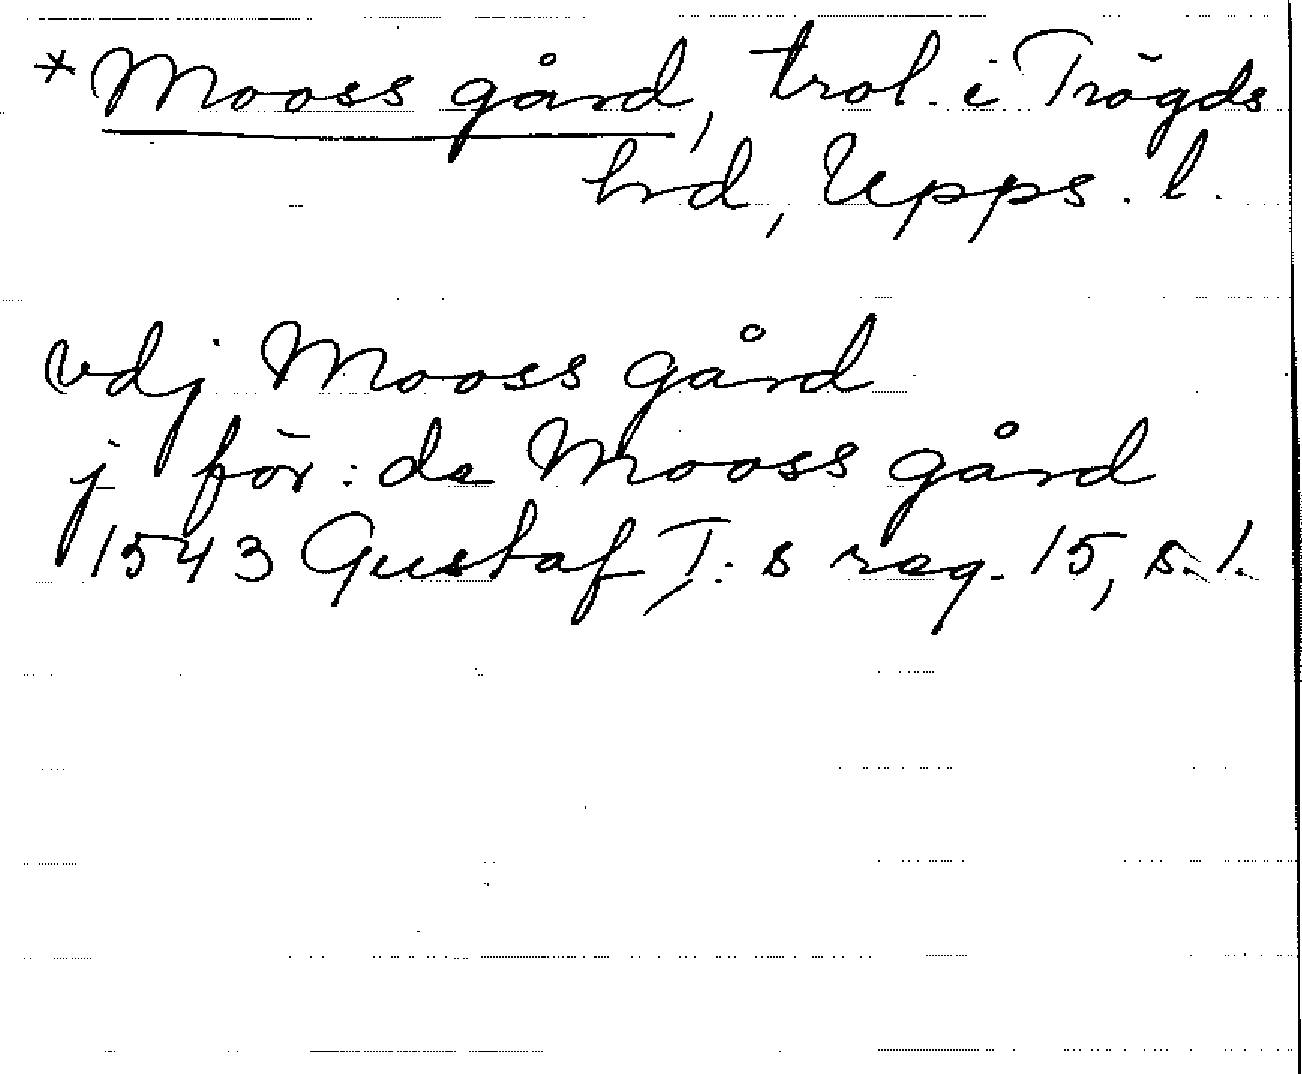 *Mooss gård, trol. i Trögds
hrd, Upps. l.
vdj Mooss gård
j för: de Mooss gård
1543 Gustaf I:s reg. 15, s. 1.